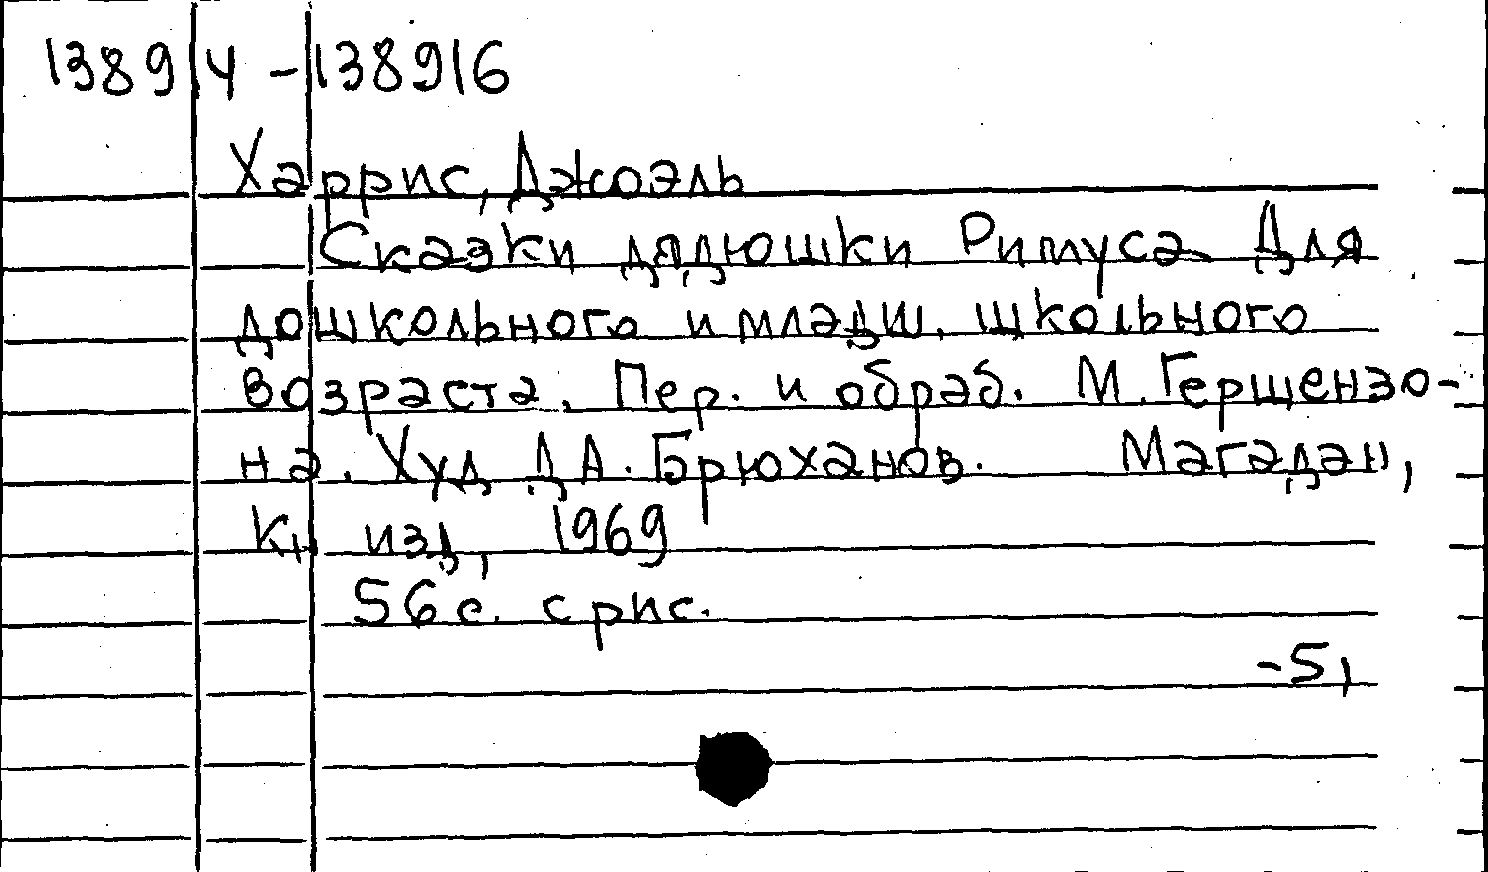 138914 - 138916
Харрис, Джоэль
Сказки дядюшки Римуса. Для
дошкольного и младш. школьного
возраста. Пер. и обраб. М. Гершензо-
на. Худ. Д. А. Брюханов. Магадан,
Кн. изд., 1969
56 с. с рис.
-5,